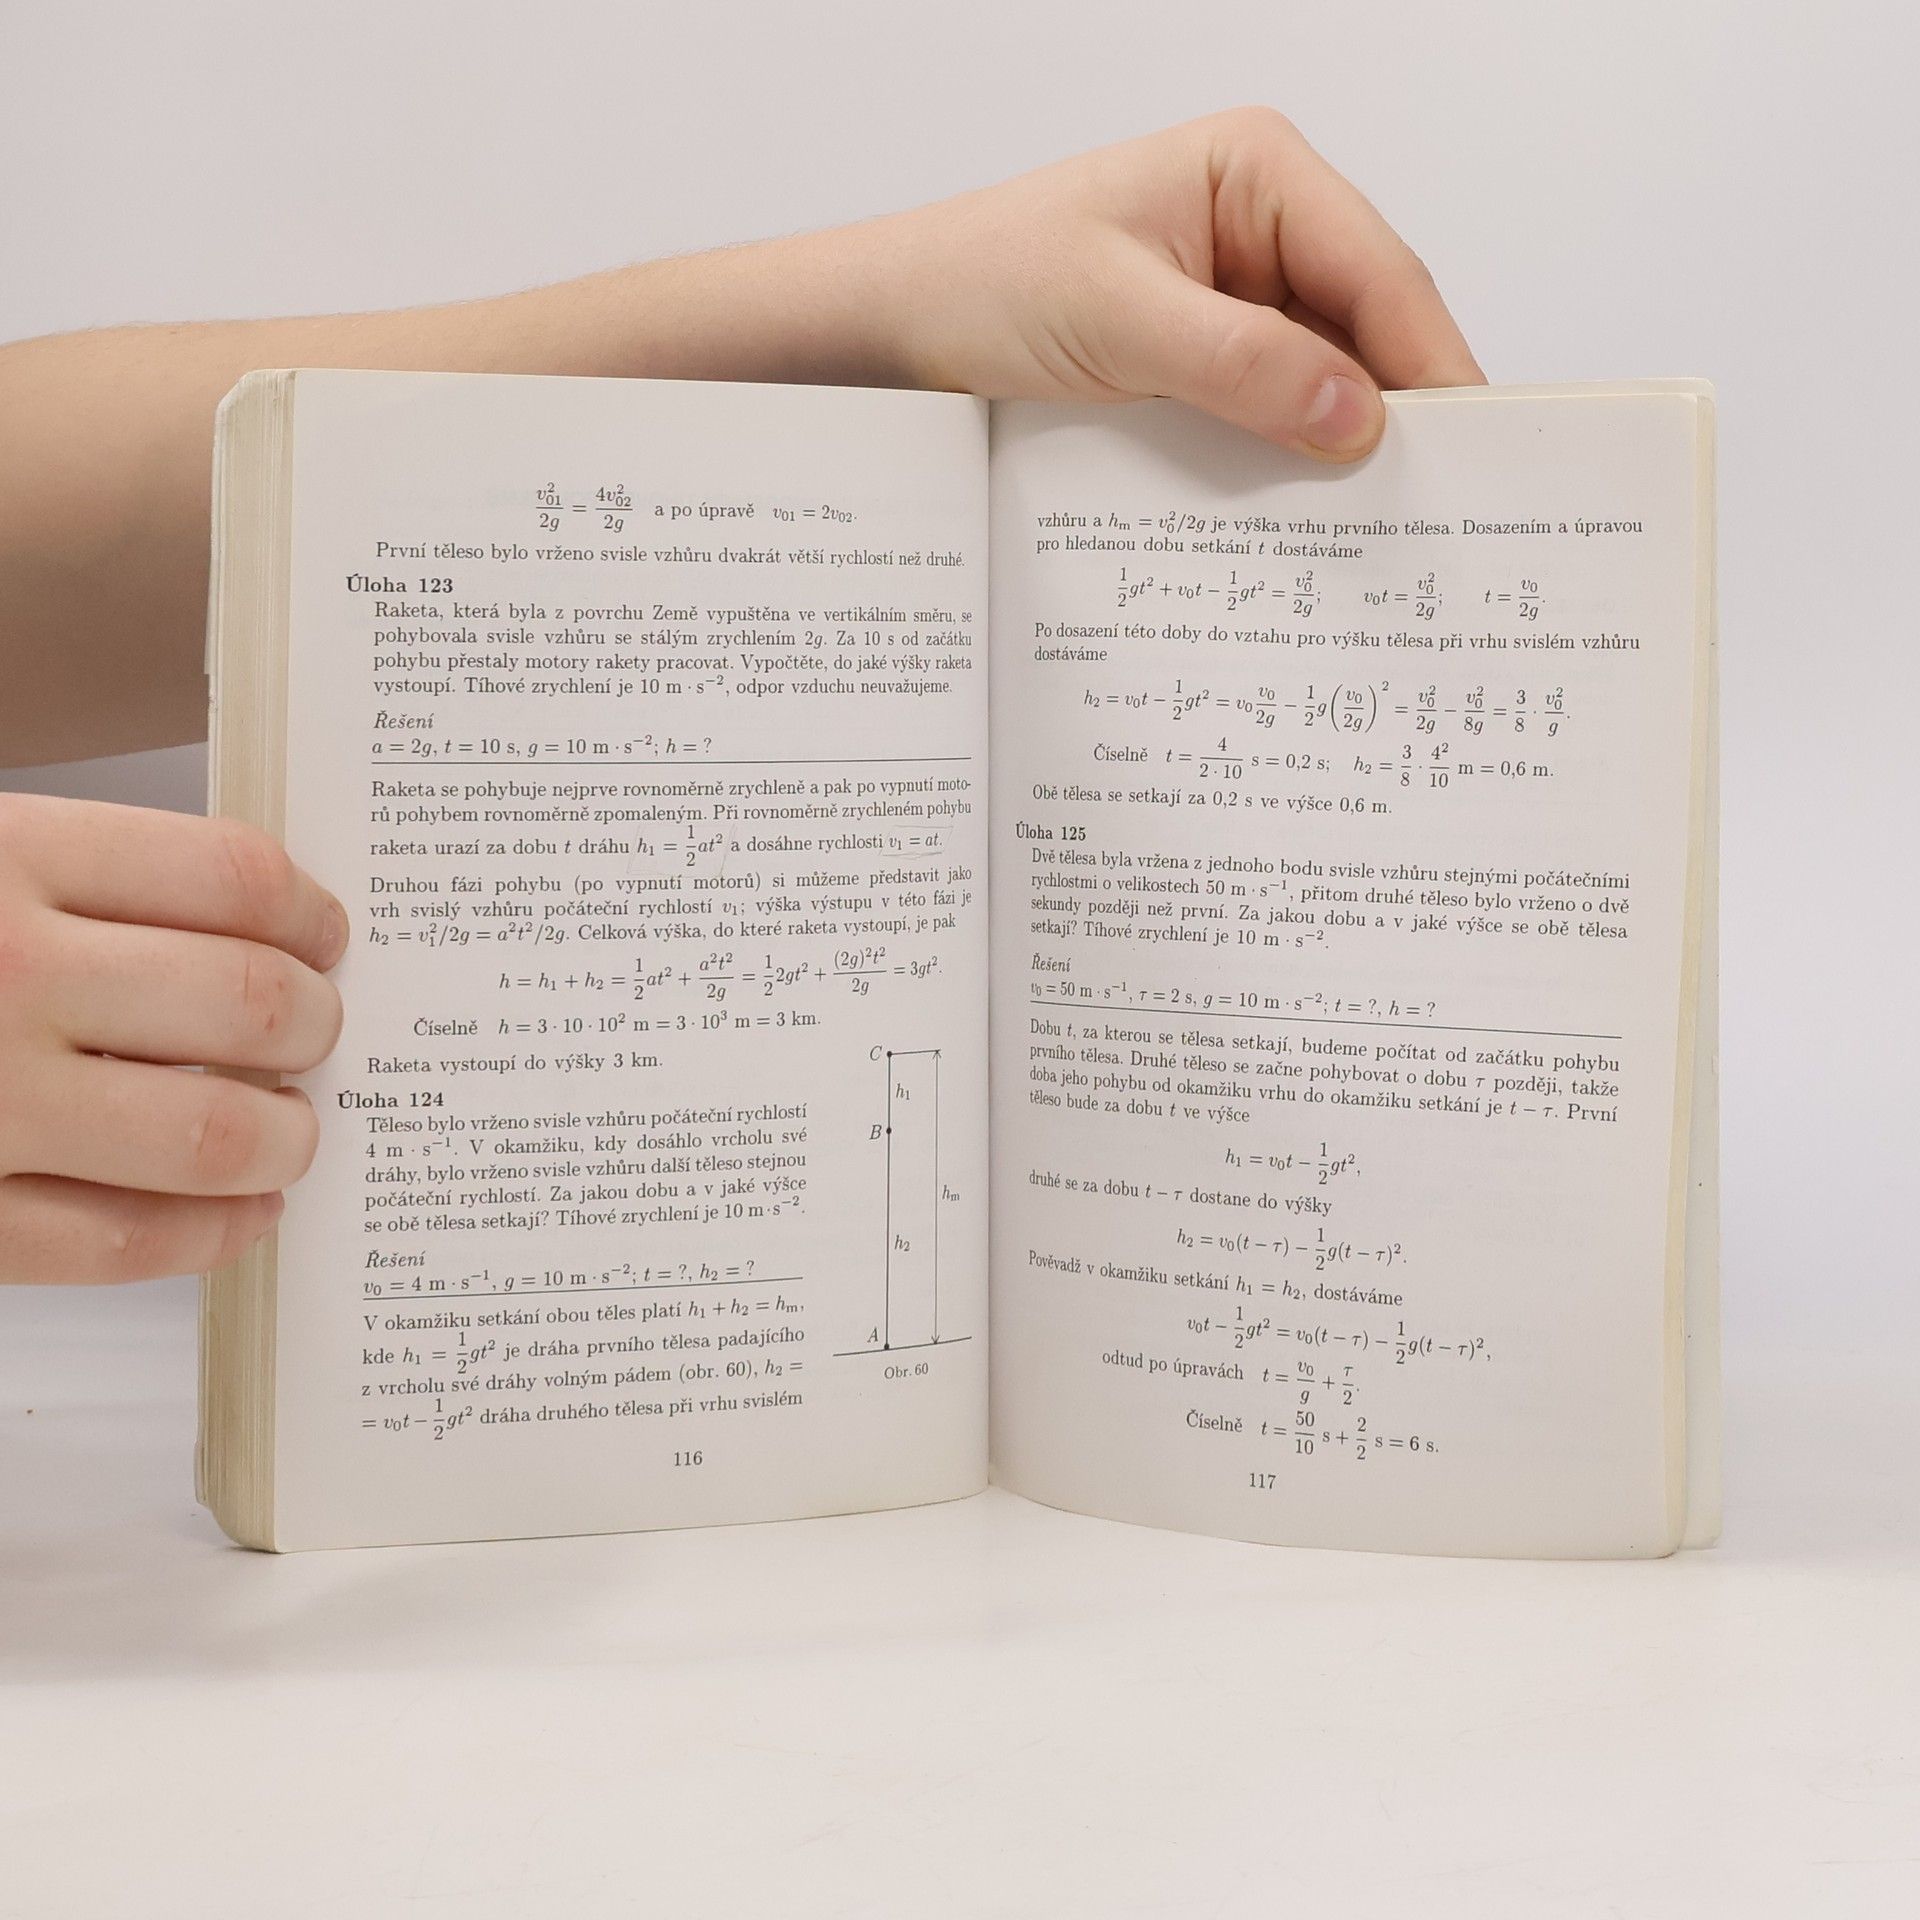 v₀₁²/2g = 4v₀₂²/2g a po úpravě v₀₁ = 2v₀₂.
První těleso bylo vrženo svisle vzhůru dvakrát větší rychlostí než druhé.
Úloha 123
Raketa, která byla z povrchu Země vypuštěna ve vertikálním směru, se
pohybovala svisle vzhůru se stálým zrychlením 2g. Za 10 s od začátku
pohybu přestaly motory rakety pracovat. Vypočtěte, do jaké výšky raketa
vystoupí. Tíhové zrychlení je 10 m · s⁻², odpor vzduchu neuvažujeme.
Řešení
a = 2g, t = 10 s, g = 10 m · s⁻²; h = ?
Raketa se pohybuje nejprve rovnoměrně zrychleně a pak po vypnutí moto-
rů pohybem rovnoměrně zpomaleným. Při rovnoměrně zrychleném pohybu
raketa urazí za dobu t dráhu h₁ = 1/2 at² a dosáhne rychlosti v₁ = at.
Druhou fázi pohybu (po vypnutí motorů) si můžeme představit jako
vrh svislý vzhůru počáteční rychlostí v₁; výška výstupu v této fázi je
h₂ = v₁²/2g = a²t²/2g. Celková výška, do které raketa vystoupí, je pak
h = h₁ + h₂ = 1/2 at² + a²t²/2g = 1/2 2gt² + (2g)²t²/2g = 3gt².
Číselně h = 3 · 10 · 10² m = 3 · 10³ m = 3 km.
Raketa vystoupí do výšky 3 km.
Úloha 124
Těleso bylo vrženo svisle vzhůru počáteční rychlostí
4 m · s⁻¹. V okamžiku, kdy dosáhlo vrcholu své
dráhy, bylo vrženo svisle vzhůru další těleso stejnou
počáteční rychlostí. Za jakou dobu a v jaké výšce
se obě tělesa setkají? Tíhové zrychlení je 10 m·s⁻².
Řešení
v₀ = 4 m · s⁻¹, g = 10 m · s⁻²; t = ?, h₂ = ?
V okamžiku setkání obou těles platí h₁ + h₂ = hₘ,
kde h₁ = 1/2 gt² je dráha prvního tělesa padajícího
z vrcholu své dráhy volným pádem (obr. 60), h₂ =
= v₀t − 1/2 gt² dráha druhého tělesa při vrhu svislém
C
h₁
B
hₘ
h₂
A
Obr. 60
116
vzhůru a hₘ = v₀²/2g je výška vrhu prvního tělesa. Dosazením a úpravou
pro hledanou dobu setkání t dostáváme
1/2 gt² + v₀t − 1/2 gt² = v₀²/2g; v₀t = v₀²/2g; t = v₀/2g.
Po dosazení této doby do vztahu pro výšku tělesa při vrhu svislém vzhůru
dostáváme
h₂ = v₀t − 1/2 gt² = v₀ v₀/2g − 1/2 g(v₀/2g)² = v₀²/2g − v₀²/8g = 3/8 · v₀²/g.
Číselně t = 4/2 · 10 s = 0,2 s; h₂ = 3/8 · 4²/10 m = 0,6 m.
Obě tělesa se setkají za 0,2 s ve výšce 0,6 m.
Úloha 125
Dvě tělesa byla vržena z jednoho bodu svisle vzhůru stejnými počátečními
rychlostmi o velikostech 50 m · s⁻¹, přitom druhé těleso bylo vrženo o dvě
sekundy později než první. Za jakou dobu a v jaké výšce se obě tělesa
setkají? Tíhové zrychlení je 10 m · s⁻².
Řešení
v₀ = 50 m · s⁻¹, τ = 2 s, g = 10 m · s⁻²; t = ?, h = ?
Dobu t, za kterou se tělesa setkají, budeme počítat od začátku pohybu
prvního tělesa. Druhé těleso se začne pohybovat o dobu τ později, takže
doba jeho pohybu od okamžiku vrhu do okamžiku setkání je t − τ. První
těleso bude za dobu t ve výšce
h₁ = v₀t − 1/2 gt²,
druhé se za dobu t − τ dostane do výšky
h₂ = v₀(t − τ) − 1/2 g(t − τ)².
Pověvadž v okamžiku setkání h₁ = h₂, dostáváme
v₀t − 1/2 gt² = v₀(t − τ) − 1/2 g(t − τ)²,
odtud po úpravách t = v₀/g + τ/2.
Číselně t = 50/10 s + 2/2 s = 6 s.
117